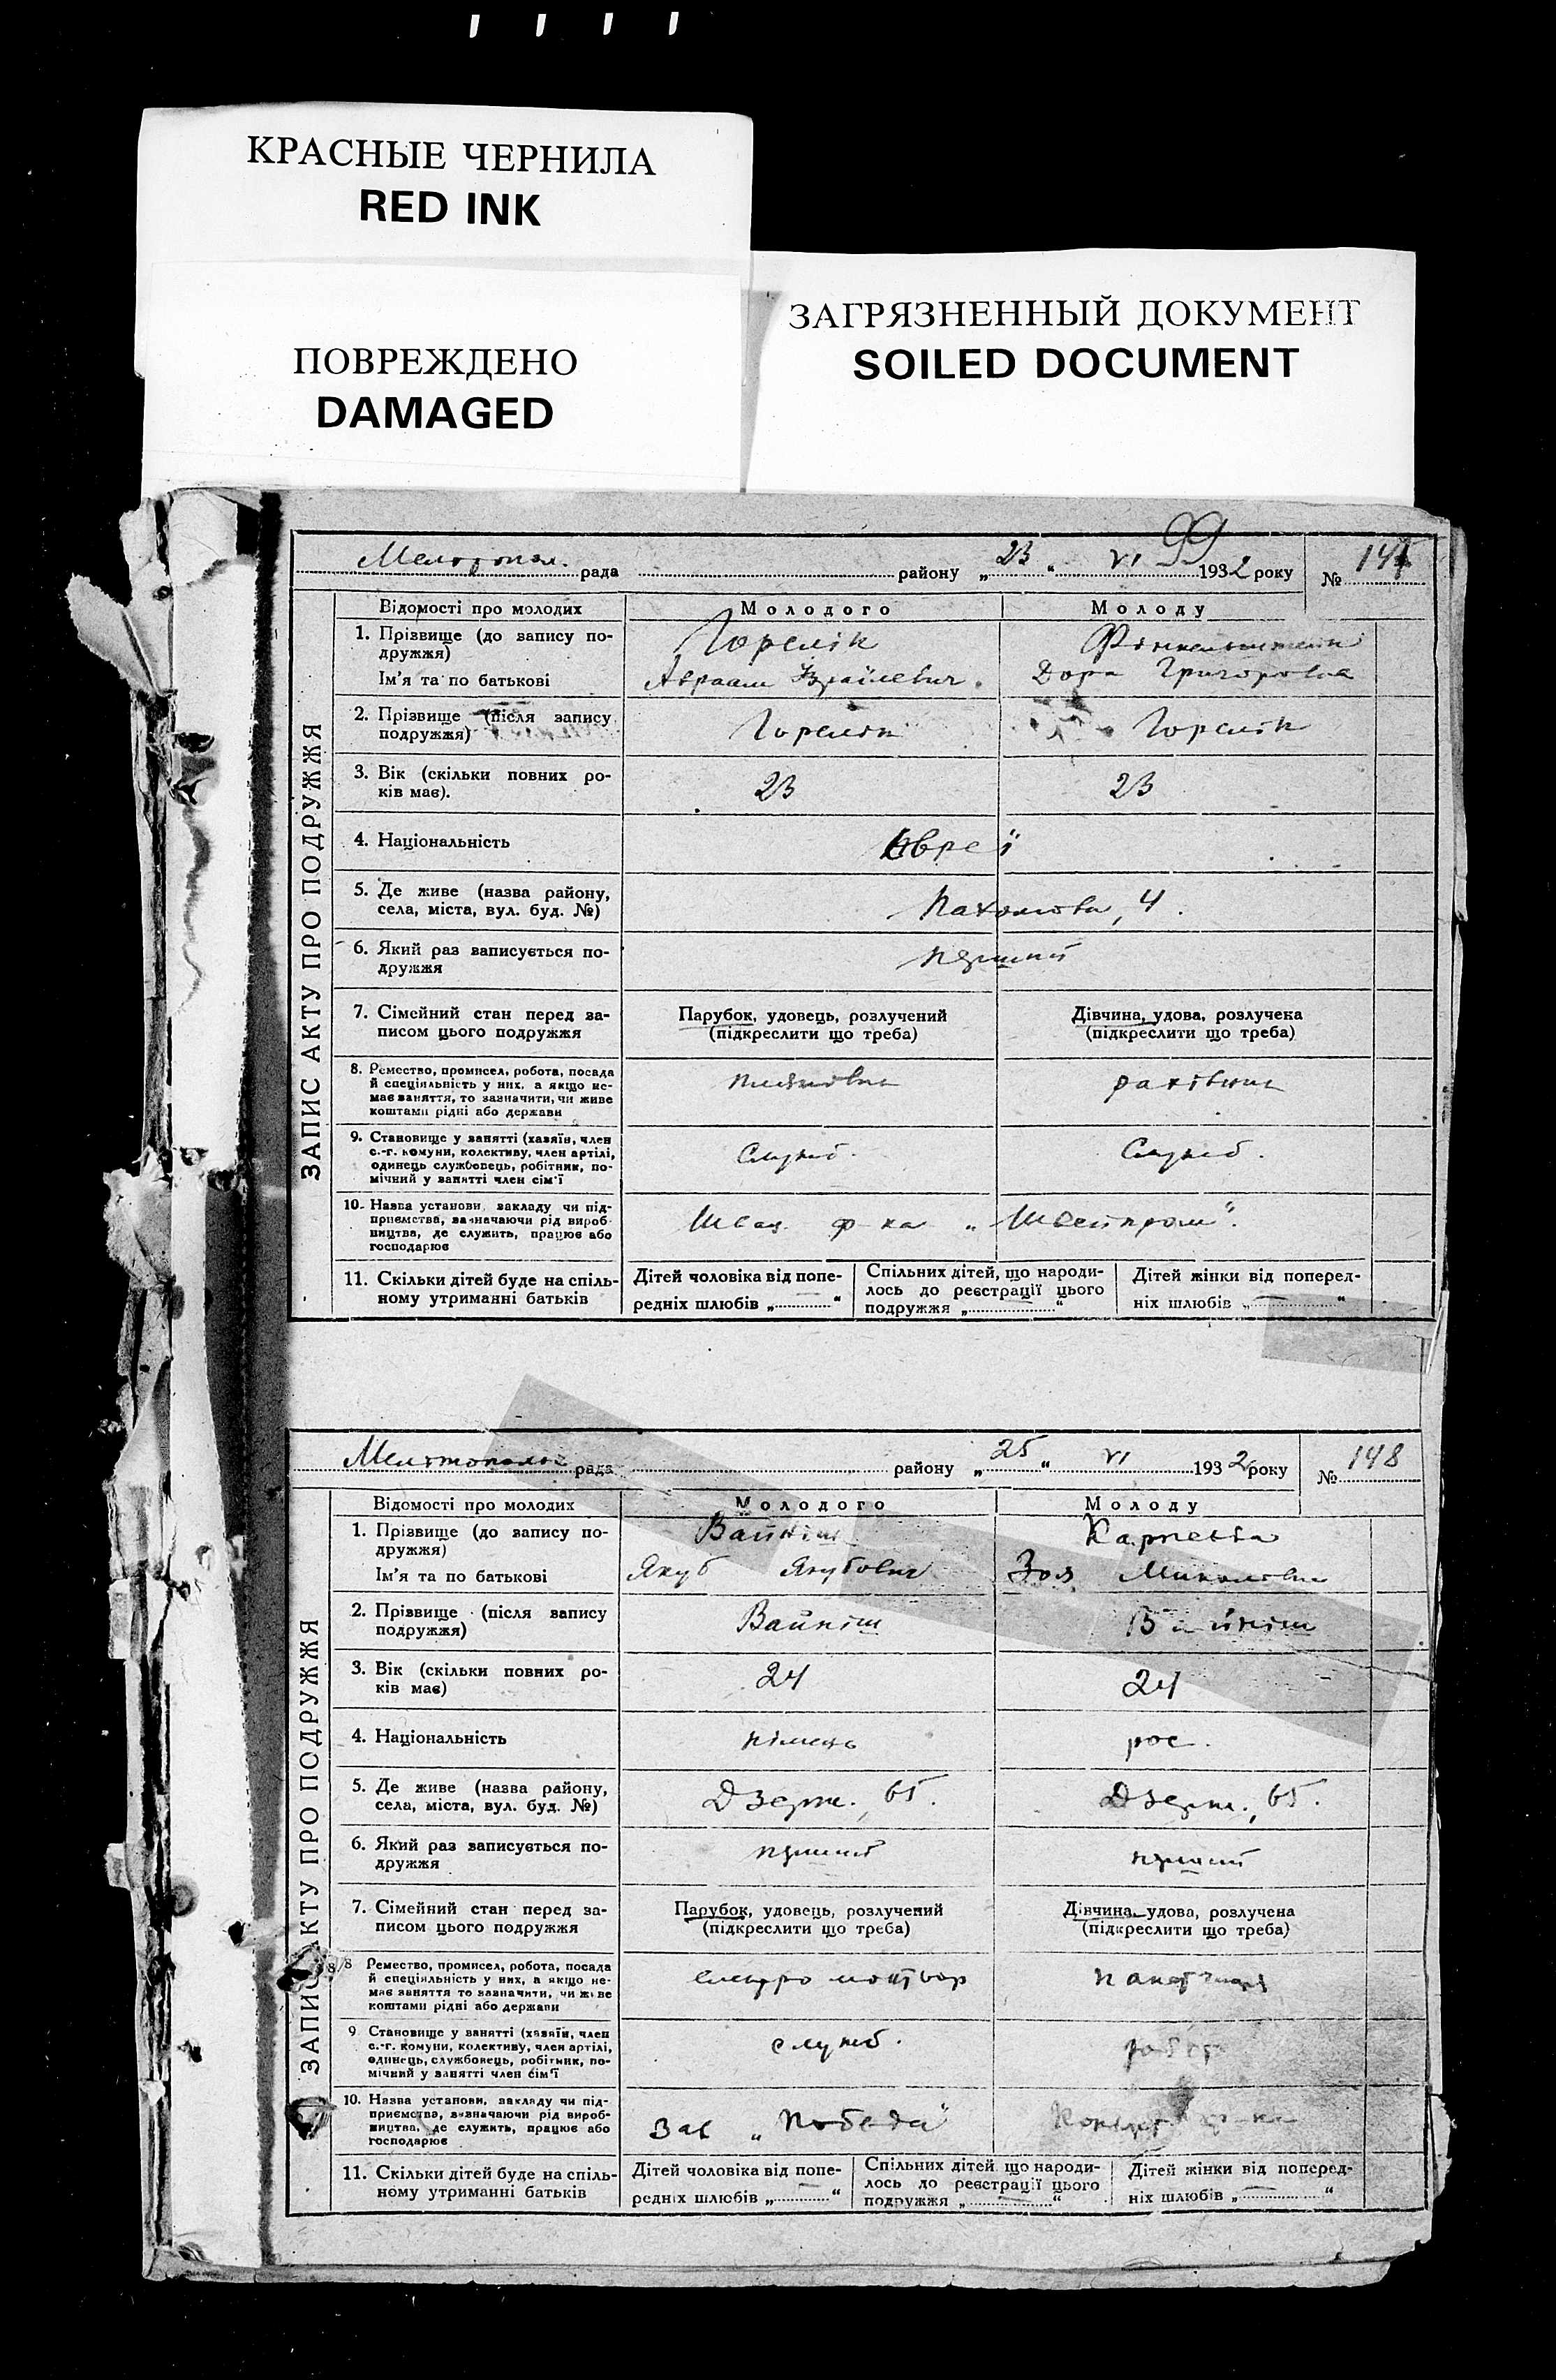 КРАСНЫЕ ЧЕРНИЛА
RED INK
ПОВРЕЖДЕНО
DAMAGED
ЗАГРЯЗНЕННЫЙ ДОКУМЕНТ
SOILED DOCUMENT
99
рада району „23“ VI 1932 року №
ЗАПИС АКТУ ПРО ПОДРУЖЖЯ
Відомості про молодих Молодого Молоду
1. Прізвище (до запису по-
дружжя)
Горелік
Ім'я та по батькові
Авраам Ізраїлевич. Дора Григоровна
2. Прізвище (після запису
подружжя)
Горелік Горелік
3. Вік (скільки повних ро-
ків має).
23 23
4. Національність
Євреї
5. Де живе (назва району,
села, міста, вул. буд. №)
4.
6. Який раз записується по-
дружжя
перший
7. Сімейний стан перед за-
писом цього подружжя
Парубок, удовець, розлучений
(підкреслити що треба)
Дівчина, удова, розлучена
(підкреслити що треба)
8. Ремество, промисел, робота, посада
й спеціяльність у них, а якщо не-
має заняття, то зазначити, чи живе
коштами рідні або держави
плановик рахівник
9. Становище у занятті (хазяїн, член
с.-г. комуни, колективу, член артілі,
одинець службовець, робітник, по-
мічний у занятті член сім'ї
Служб. Служб.
10. Назва установи, закладу чи під-
приємства, зазначаючи рід вироб-
ництва, де служить, працює або
господарює
ф-ка „Швейпром“.
11. Скільки дітей буде на спіль-
ному утриманні батьків
Дітей чоловіка від попе-
редніх шлюбів „—“
Спільних дітей, що народи-
лось до реєстрації цього
подружжя „—“
Дітей жінки від поперед-
ніх шлюбів „—“
рада району „25“ VI 1932 року № 148
ЗАПИС АКТУ ПРО ПОДРУЖЖЯ
Відомості про молодих Молодого Молоду
1. Прізвище (до запису по-
дружжя)
Вайніш
Ім'я та по батькові
Якуб Якубович Зоя
2. Прізвище (після запису
подружжя)
Вайніш Вайніш
3. Вік (скільки повних ро-
ків має)
24 24
4. Національність
німець рос.
5. Де живе (назва району,
села, міста, вул. буд. №)
Дзерж., 65. Дзерж., 65.
6. Який раз записується по-
дружжя
перший перший
7. Сімейний стан перед за-
писом цього подружжя
Парубок, удовець, розлучений
(підкреслити що треба)
Дівчина, удова, розлучена
(підкреслити що треба)
8. Ремество, промисел, робота, посада
й спеціяльність у них, а якщо не-
має заняття то зазначити, чи живе
коштами рідні або держави
9. Становище у занятті (хазяїн, член
с.-г. комуни, колективу, член артілі,
одинець, службовець, робітник, по-
мічний у занятті член сім'ї
служб.
10. Назва установи, закладу чи під-
приємства, зазначаючи рід вироб-
ництва, де служить, працює або
господарює
Зав „Победа“
11. Скільки дітей буде на спіль-
ному утриманні батьків
Дітей чоловіка від попе-
редніх шлюбів „—“
Спільних дітей що народи-
лось до реєстрації цього
подружжя „—“
Дітей жінки від поперед-
ніх шлюбів „—“